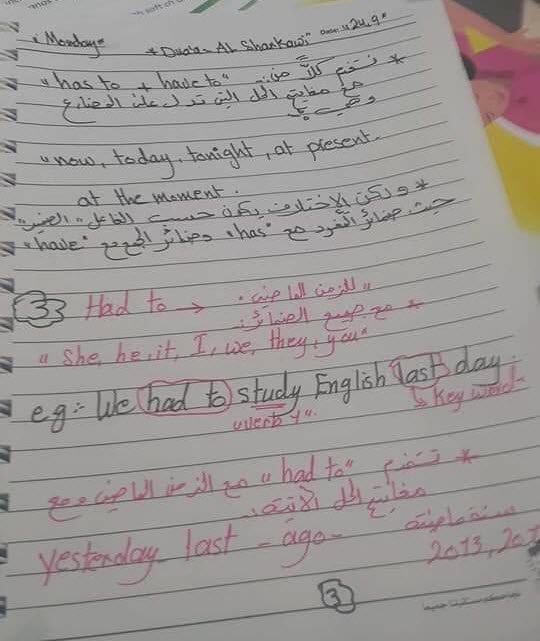 "Monday" * Duaa- AL Shankawi "24,9"
* تستخدم كلاًّ من "has to + have to"
مع مفاتيح الحل التي تدل على المضارع
وهي:
"now, today, tonight, at present.
at the moment.
* ولكن الإختلاف يكون حسب الفاعل "الضمير"
حيث ضمائر المفرد مع "has" وضمائر الجمع مع "have"
③ Had to → "للزمن الماضي.
* مع جميع الضمائر:
"She, he, it, I, we, they, you"
eg:- We had to study English last day.
"verb 1". ↳ Key word
* تستخدم "had to" مع الزمن الماضي ومع
مفاتيح الحل الآتية:
yesterday - last - ago - سنة ماضية
2013,
③